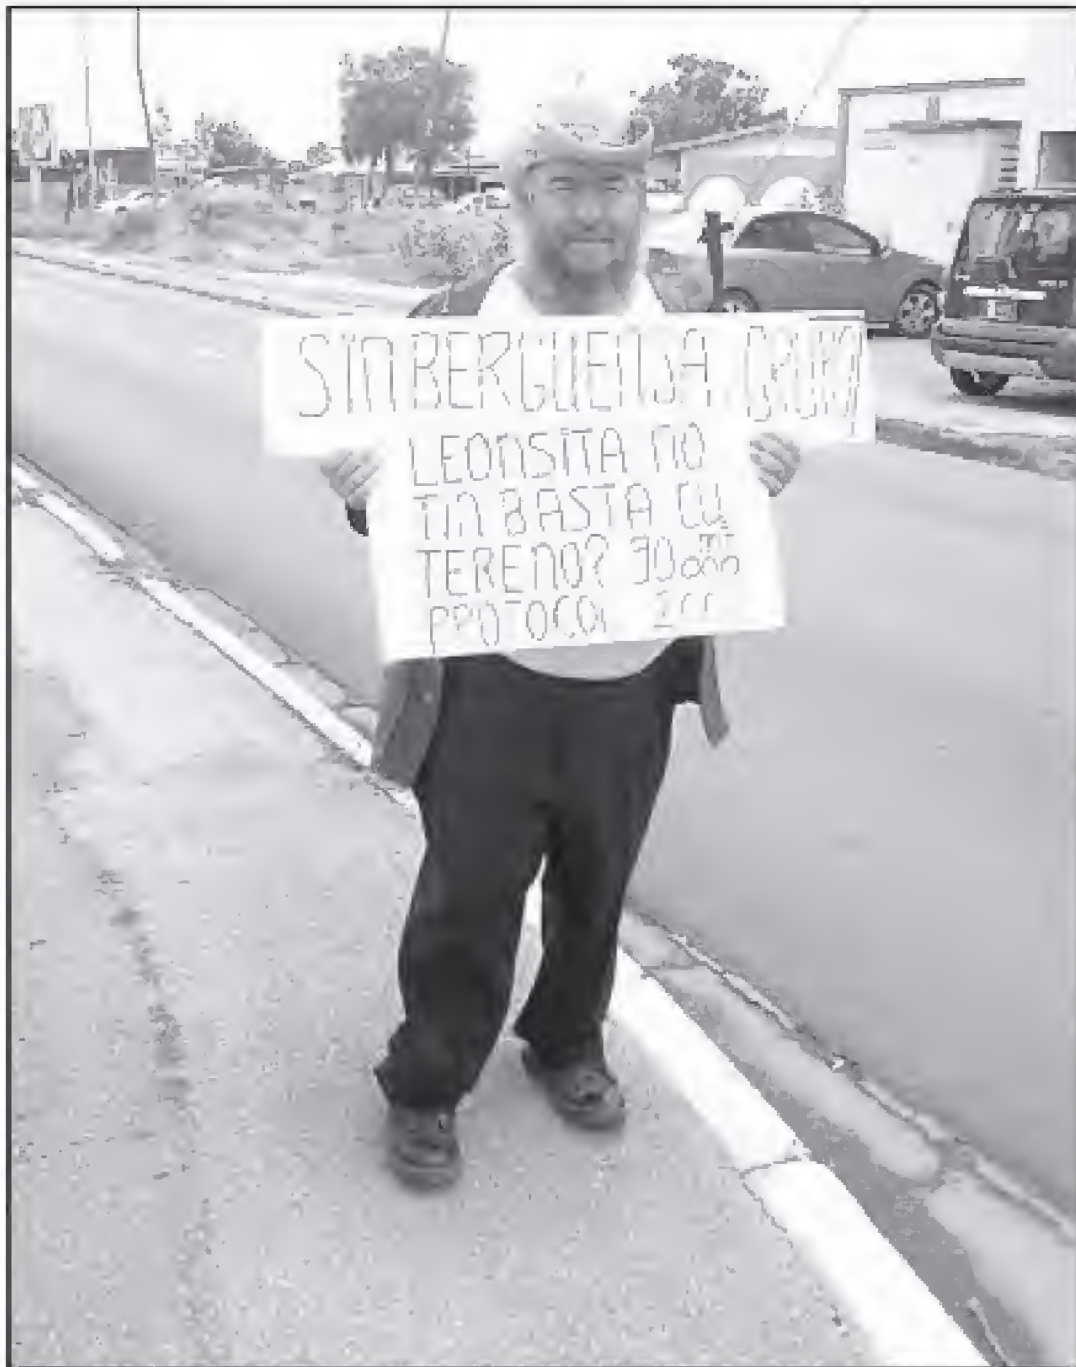 SIN BERGUENSA
LEONSITA NO
TIN BASTA CU
TERENO? 30
PROTOCOL